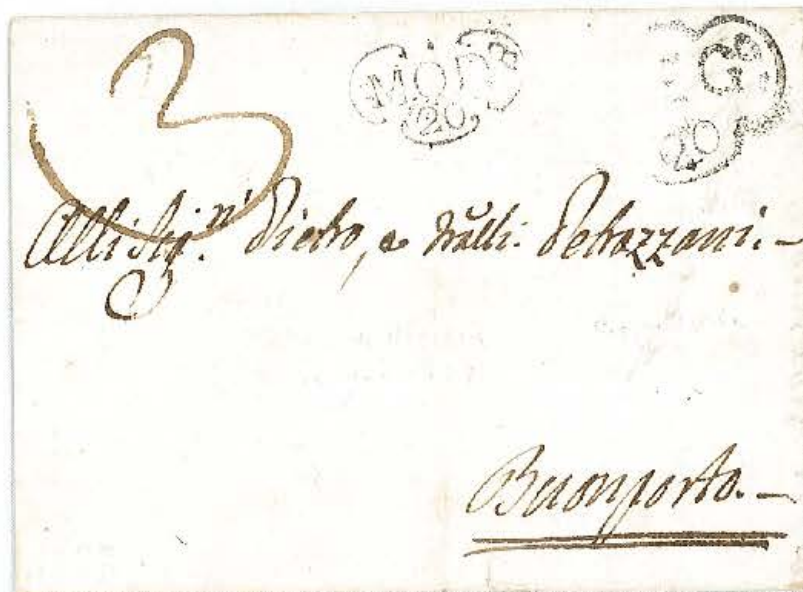 3
MOD
20
G
20
Alli Sig.ni Pietro, e Fr̃lli. Pedrazzani. –
Buonporto. –